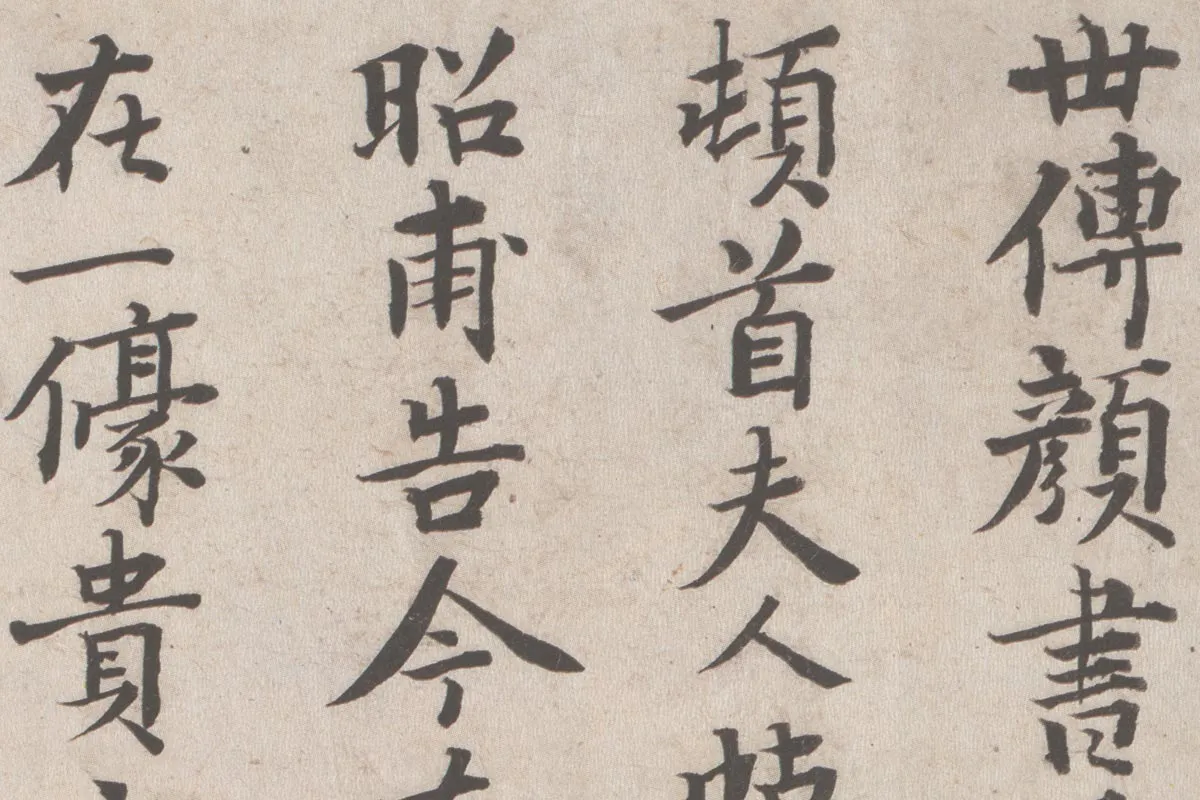 世傳顏書
頓首夫人
昭甫告今
在一㒙貴